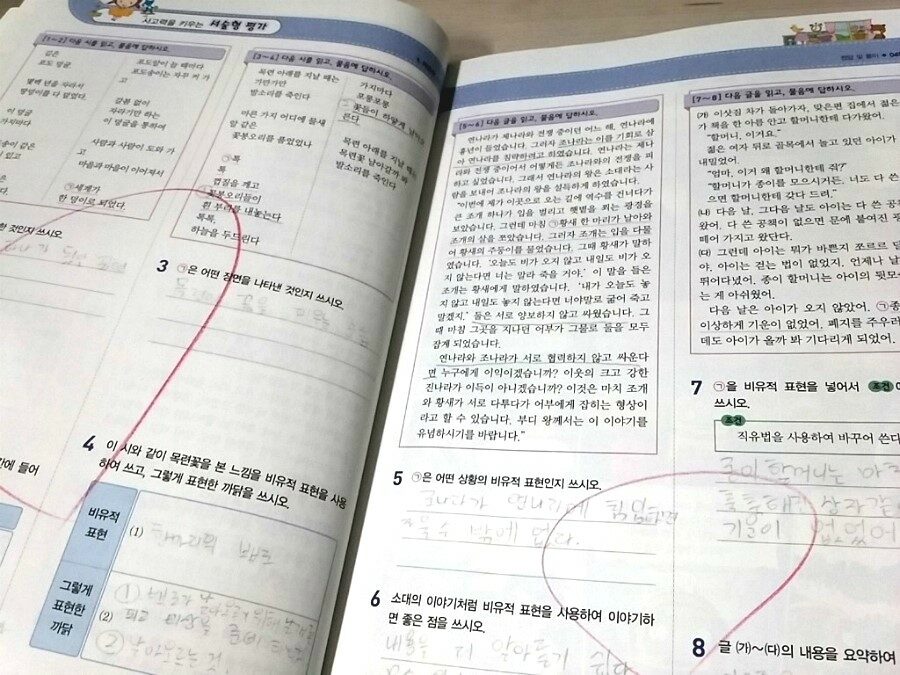 사고력을 키우는 서술형 평가
[1~2] 다음 시를 읽고, 물음에 답하시오.
포도 덩굴
몇백 년을 자라서
땅덩이를 다 덮었다.
이 덩굴
가지마다
포도알이 될 때마다
포도송이는 자꾸 커 가
고
갈봄 없이
자라기만 하는
이 덩굴을 통하여
사람과 사람이 도와 가
고
마을과 마을이 이어져서
㉠세계가
한 덩이로 되었다.
[3~4] 다음 시를 읽고, 물음에 답하시오.
목련 아래를 지날 때는
가만가만
발소리를 죽인다
마른 가지 어디에 물새
알 같은
꽃봉오리를 품었었나
㉠톡
톡
껍질을 깨고
꽃봉오리들이
흰 부리를 내놓는다
톡톡,
하늘을 두드린다
가지마다
포롱포롱
꽃들이 하얗게 날아오
른다
목련 아래를 지날 때는
목련꽃 날아갈까 봐
발소리를 죽인다
한 것인지 쓰시오.
3 ㉠은 어떤 장면을 나타낸 것인지 쓰시오.
4 이 시와 같이 목련꽃을 본 느낌을 비유적 표현을 사용
하여 쓰고, 그렇게 표현한 까닭을 쓰시오.
비유적
표현
(1) 한마리의 백조
그렇게
표현한
까닭
(2)
정답 및 풀이
[5~6] 다음 글을 읽고, 물음에 답하시오.
연나라가 제나라와 전쟁 중이던 어느 해, 연나라에
흉년이 들었습니다. 그러자 조나라는 이를 기회로 삼
아 연나라를 침략하려고 하였습니다. 연나라는 제나
라와 전쟁 중이어서 어떻게든 조나라와의 전쟁을 피
하고 싶었습니다. 그래서 연나라의 왕은 소대라는 사
람을 보내어 조나라의 왕을 설득하게 하였습니다.
“이번에 제가 이곳으로 오는 길에 역수를 건너다가
큰 조개 하나가 입을 벌리고 햇볕을 쬐는 광경을
보았습니다. 그런데 마침 ㉠황새 한 마리가 날아와
조개의 살을 쪼았습니다. 그러자 조개는 입을 다물
어 황새의 주둥이를 물었습니다. 그때 황새가 말하
였습니다. ‘오늘도 비가 오지 않고 내일도 비가 오
지 않는다면 너는 말라 죽을 거야.’ 이 말을 들은
조개는 황새에게 말하였습니다. ‘내가 오늘도 놓
지 않고 내일도 놓지 않는다면 너야말로 굶어 죽고
말겠지.’ 둘은 서로 양보하지 않고 싸웠습니다. 그
때 마침 그곳을 지나던 어부가 그물로 둘을 모두
잡게 되었습니다.
연나라와 조나라가 서로 협력하지 않고 싸운다
면 누구에게 이익이겠습니까? 이웃의 크고 강한
진나라가 이득이 아니겠습니까? 이것은 마치 조개
와 황새가 서로 다투다가 어부에게 잡히는 형상이
라고 할 수 있습니다. 부디 왕께서는 이 이야기를
유념하시기를 바랍니다.”
5 ㉠은 어떤 상황의 비유적 표현인지 쓰시오.
조나라가 연나라에 침입
수 밖에 없다.
6 소대의 이야기처럼 비유적 표현을 사용하여 이야기하
면 좋은 점을 쓰시오.
내용을 더 알아듣기 쉽다
[7~8] 다음 글을 읽고, 물음에 답하시오.
(가) 이삿짐 차가 돌아가자, 맞은편 집에서 젊은
가 책을 한 아름 안고 할머니한테 다가왔어.
“할머니, 이거요.”
젊은 여자 뒤로 골목에서 놀고 있던 아이가
내밀었어.
“엄마, 이거 왜 할머니한테 줘?”
“할머니가 종이를 모으시거든. 너도 다 쓴
으면 할머니한테 갖다 드려.”
(나) 다음 날, 그다음 날도 아이는 다 쓴 공책
왔어. 다 쓴 공책이 없으면 문에 붙여진 광
떼어 가지고 왔단다.
(다) 그런데 아이는 뭐가 바쁜지 쪼르르 달
야. 아이는 걷는 법이 없었지. 언제나 날
뛰어다녔어. 종이 할머니는 아이의 뒷모
는 게 아쉬웠어.
다음 날은 아이가 오지 않았어. ㉠종
이상하게 기운이 없었어. 폐지를 주우러
데도 아이가 올까 봐 기다리게 되었어.
7 ㉠을 비유적 표현을 넣어서 조건에
쓰시오.
조건
직유법을 사용하여 바꾸어 쓴다
종이할머니는 마치
상자같
기운이 없었어
8 글 (가)~(다)의 내용을 요약하여